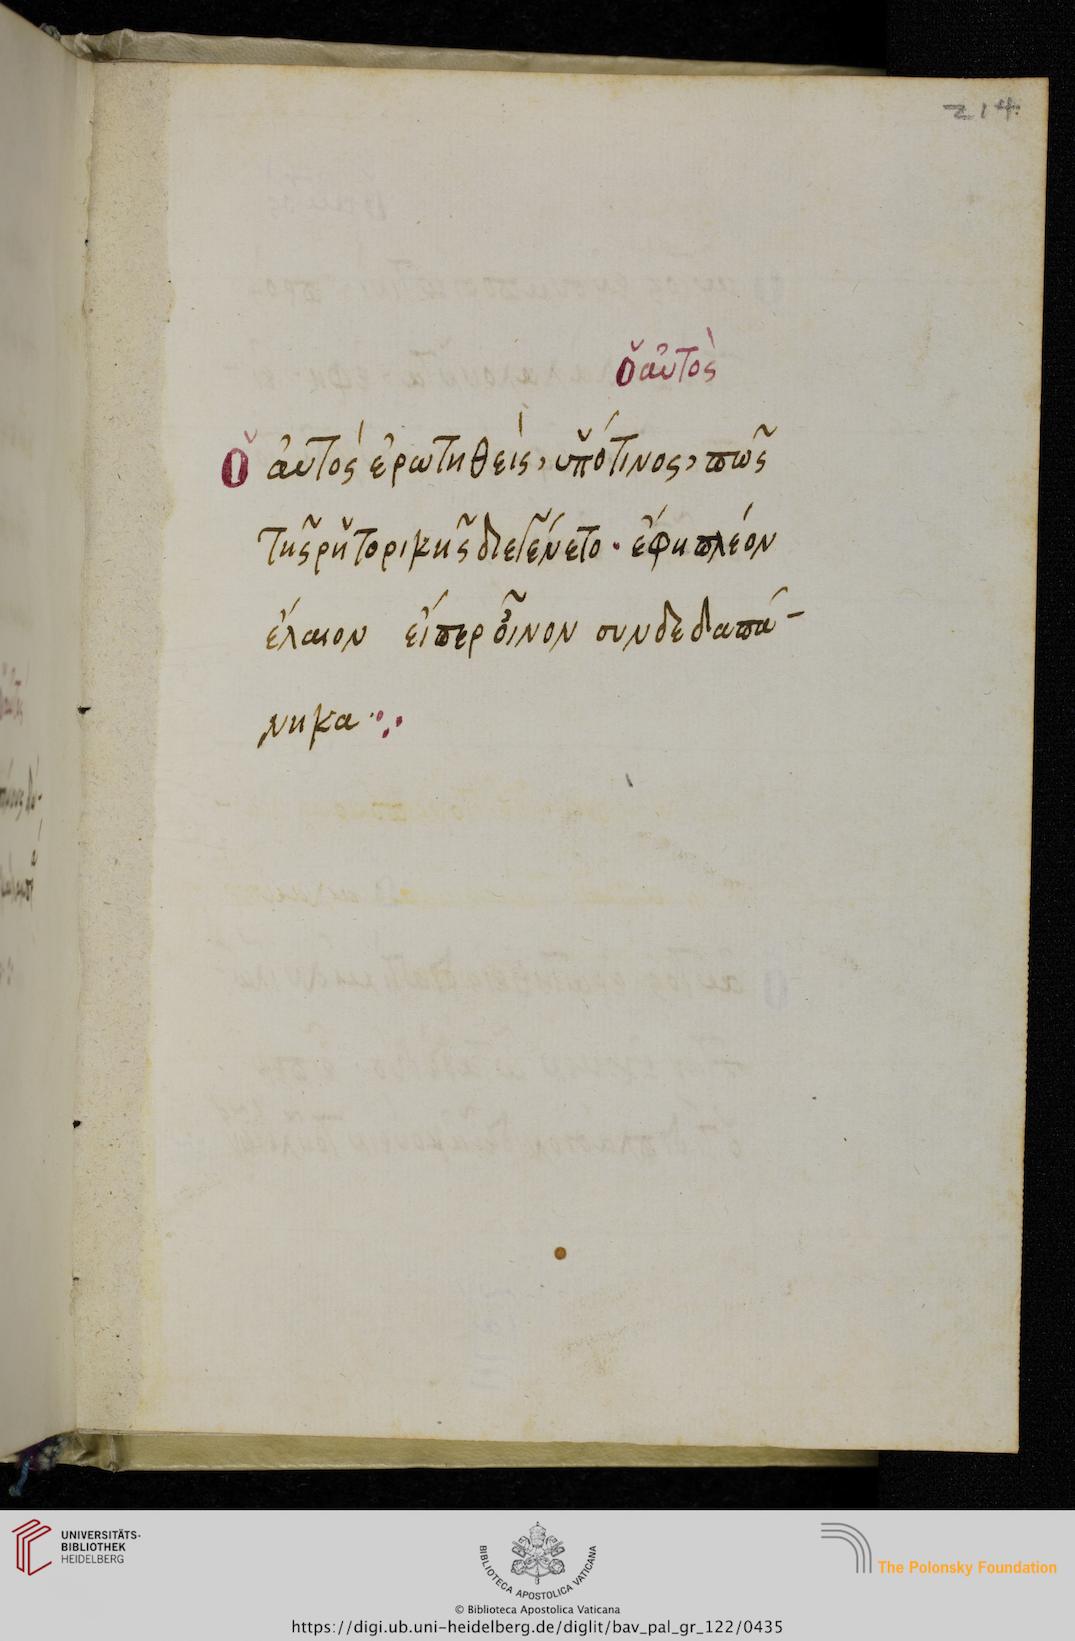 214
ὁ αὐτὸς
Ὁ αὐτὸς ἐρωτηθεὶς, ὑπό τινος, πῶς
τῆς ρητορικῆς διεγένετο · ἔφη πλέον
ἔλαιον εἴπερ οἶνον συνδεδαπά-
νηκα
UNIVERSITÄTS-
BIBLIOTHEK
HEIDELBERG
BIBLIOTECA APOSTOLICA VATICANA
The Polonsky Foundation
© Biblioteca Apostolica Vaticana
https://digi.ub.uni-heidelberg.de/diglit/bav_pal_gr_122/0435